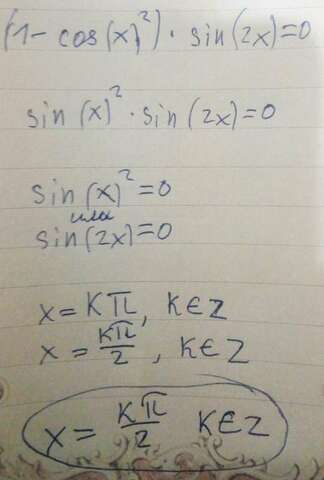 (1-cos(x)²)·sin(2x)=0
sin(x)²·sin(2x)=0
sin(x)²=0
или
sin(2x)=0
x=kπ, k∈Z
x=kπ/2, k∈Z
x=kπ/2 k∈Z